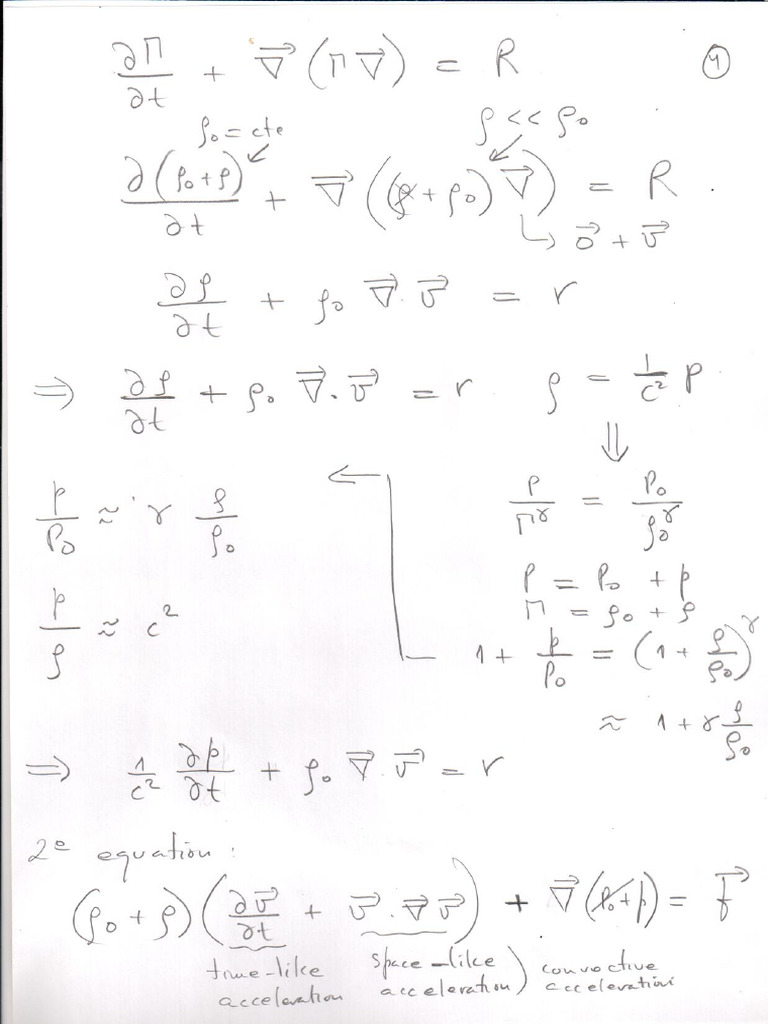 ∂Π/∂t + ∇⃗(Π V⃗) = R   (4)
ρ₀ = cte   ρ << ρ₀
∂(ρ₀+ρ)/∂t + ∇⃗((ρ + ρ₀) V⃗) = R .
↳ 0⃗ + v⃗
∂ρ/∂t + ρ₀ ∇⃗.v⃗ = r
⇒ ∂ρ/∂t + ρ₀ ∇⃗.v⃗ = r   ρ = 1/c² p
⇓
p/P₀ ≈ γ ρ/ρ₀   ←   P/Π^γ = P₀/ρ₀^γ
P = P₀ + p
p/ρ ≈ c²   Π = ρ₀ + ρ
1 + p/P₀ = (1 + ρ/ρ₀)^γ
≈ 1 + γ ρ/ρ₀
⇒ 1/c² ∂p/∂t + ρ₀ ∇⃗.v⃗ = r
2º equation :
(ρ₀ + ρ)(∂v⃗/∂t + v⃗.∇⃗ v⃗) + ∇⃗(P₀+p) = f⃗
time-like acceleration   space-like acceleration) convective acceleration